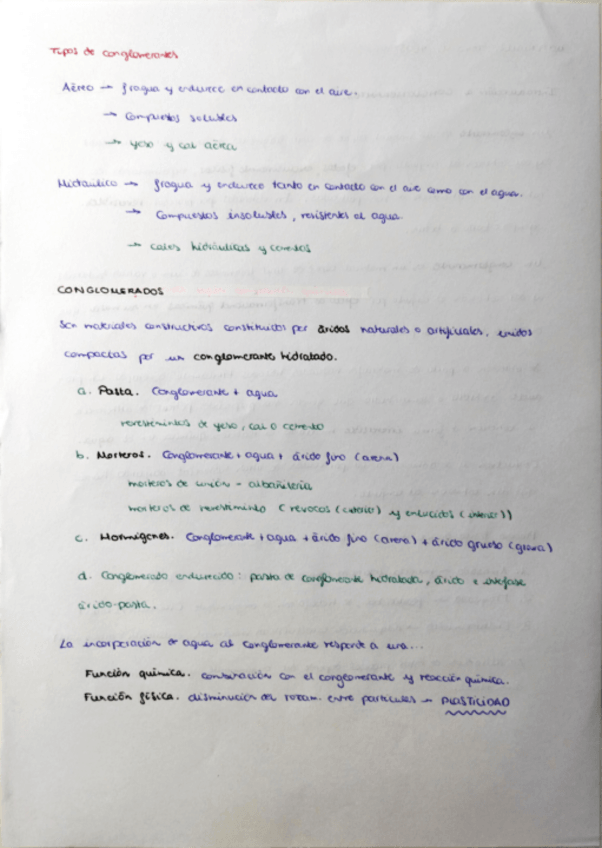 Tipos de conglomerantes
Aéreo → fragua y endurece en contacto con el aire.
→ Compuestos solubles
→ yeso y cal aérea
Hidráulico → fragua y endurece tanto en contacto con el aire como con el agua.
→ Compuestos insolubles, resistentes al agua.
→ cales hidráulicas y cementos
CONGLOMERADOS
Son materiales constructivos constituidos por áridos naturales o artificiales, unidos
compactas por un conglomerante hidratado.
a. Pasta. Conglomerante + agua
revestimientos de yeso, cal o cemento
b. Morteros. Conglomerante + agua + árido fino (arena)
morteros de unión - albañilería
morteros de revestimiento (revocos (exterior) y enlucidos (interior))
c. Hormigones. Conglomerante + agua + árido fino (arena) + árido grueso (grava)
d. Conglomerado endurecido: pasta de conglomerante hidratada, árido e interfase
árido-pasta.
La incorporación de agua al conglomerante responde a una...
Función química. combinación con el conglomerante y reacción química.
Función física. disminución del rozam. entre partículas → PLASTICIDAD